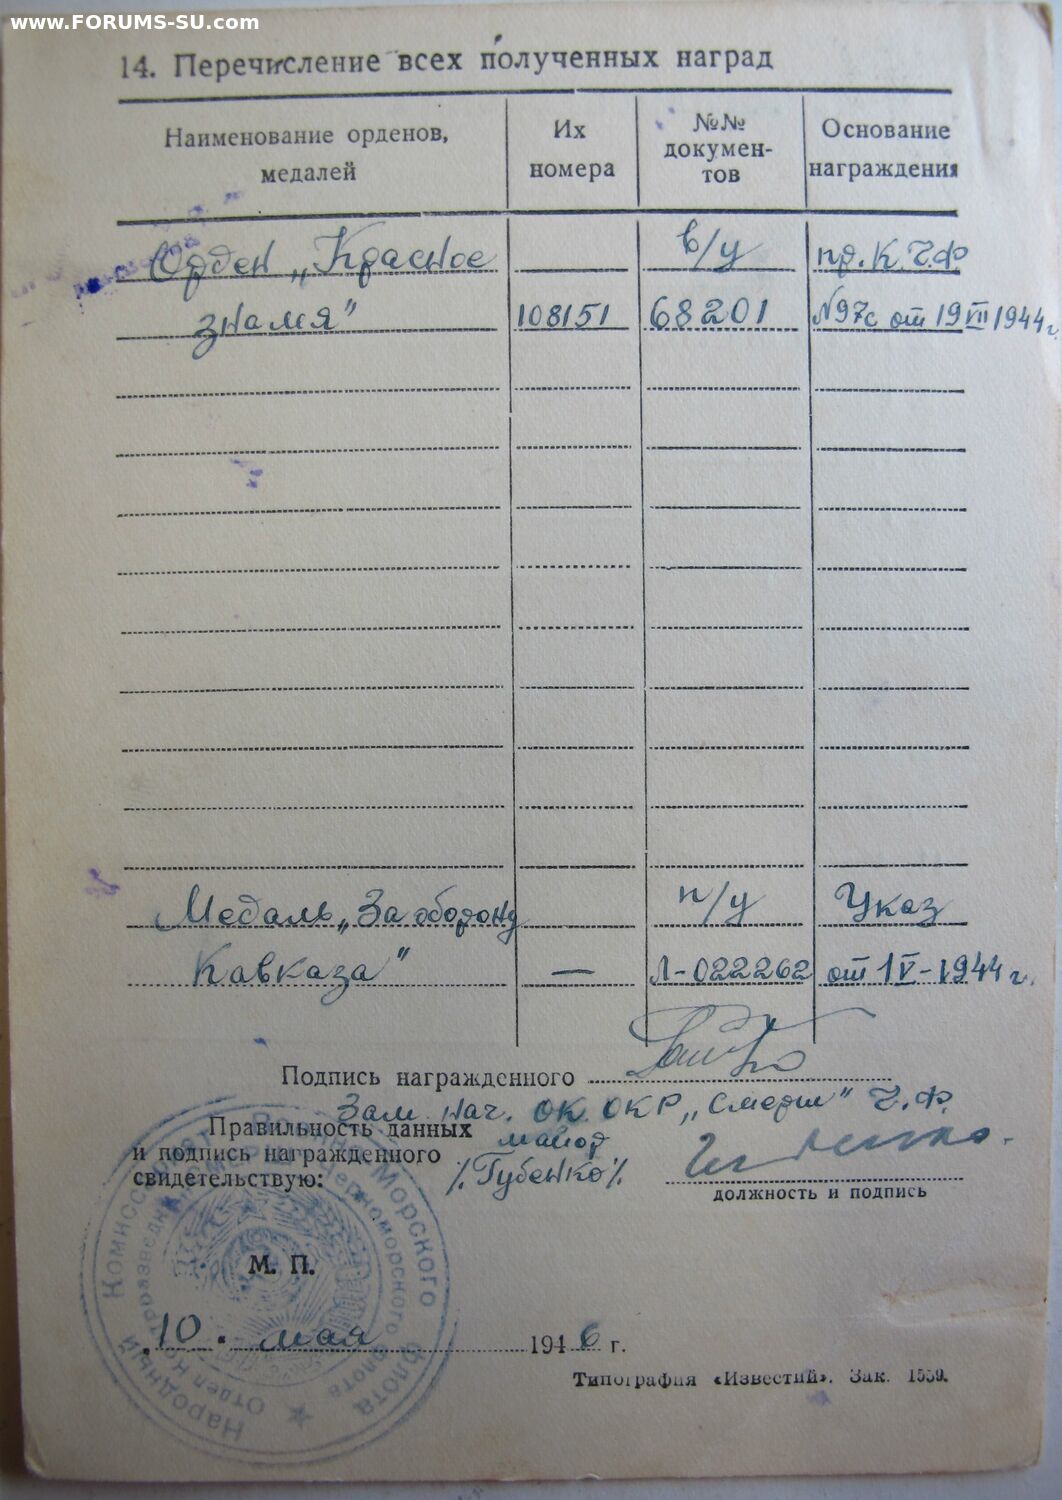 www.FORUMS-SU.com
14. Перечисление всех полученных наград
Наименование орденов, медалей
Их номера
№№ докумен-тов
Основание награждения
Орден „Красное в/у пр. К.Ч.Ф
знамя" 108151 68201 №97с от 19 VII 1944г.
Медаль „За оборону п/у Указ
Кавказа" — Л-022262 от 1 V-1944 г.
Подпись награжденного
Зам. нач. ОК ОКР „Смерш" Ч.Ф.
Правильность данных майор
и подпись награжденного
свидетельствую: /Губенко/
должность и подпись
М. П.
Народный Комиссариат Военно Морского Флота
Отдел контрразведки СМЕРШ Черноморского флота
10. мая 1946 г.
Типография «Известий». Зак. 1559.